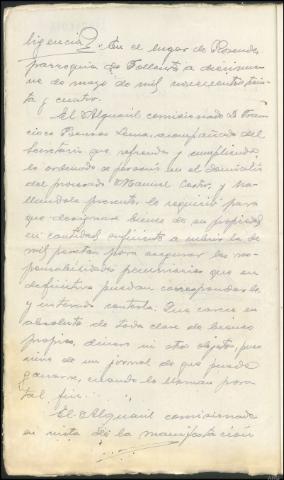 ligencia? En el lugar de Rosende
parroquia de a dieciseis
de mayo de mil novecientos trein
ta y cuatro.
El Alguacil comisionado D. Fran
cisco acompañado del
Secretario que refrenda y cumpliendo
lo ordenado se personó en el domicilio
del procesado Manuel Castro, y ha
llandole presente, le requirió para
que designase bienes de su propiedad
en cantidad suficiente a cubrir la de
mil pesetas para asegurar las res
ponsabilidades pecuniarias que en
definitiva puedan corresponderle
y enterado contesta: Que carece en
absoluto de toda clase de bienes
propios, dinero ni otro objeto, pues
vive de un jornal de que puede
ganarse, cuando le llaman para
tal fin.
El Alguacil comisionado
en vista de la manifestación